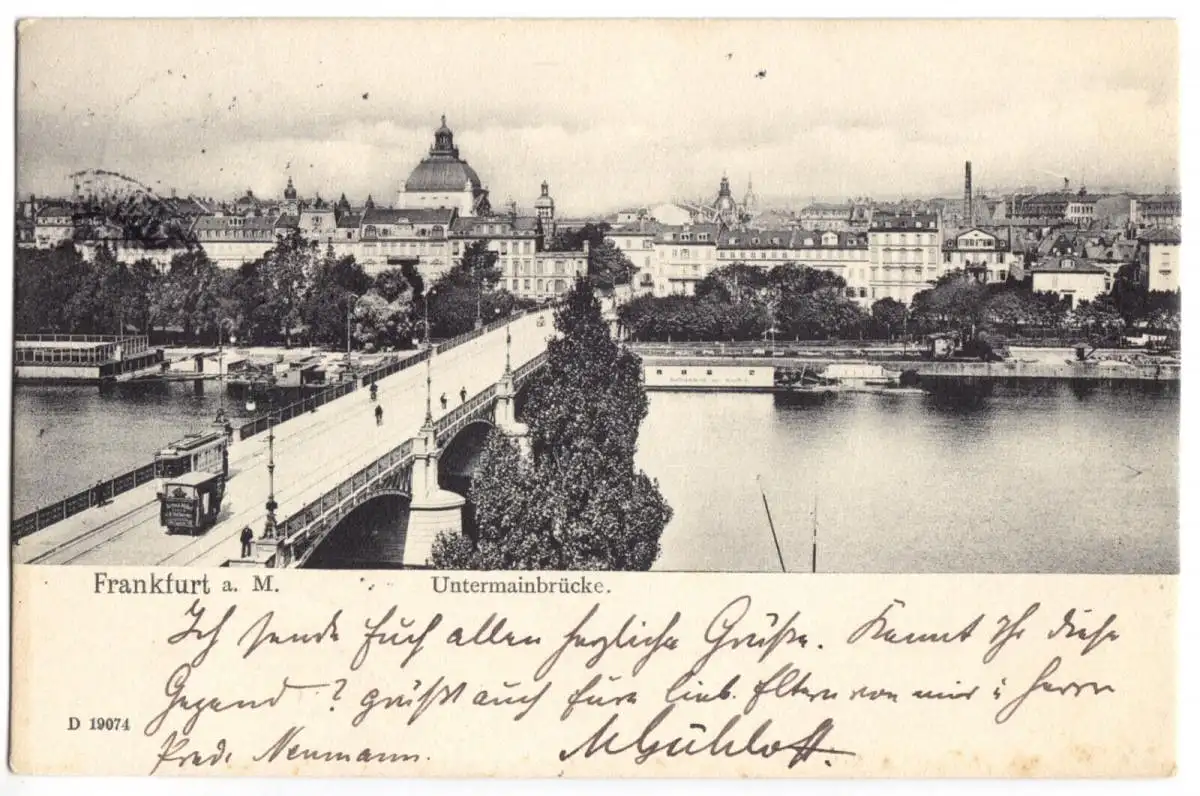 Frankfurt a. M.
Untermainbrücke.
Ich sende Euch allen herzliche Grüße. Kennt Ihr diese
Gegend? grüßt auch Eure lieb. Eltern von mir u Herrn
D 19074
Pred. Neumann. M Gühloff